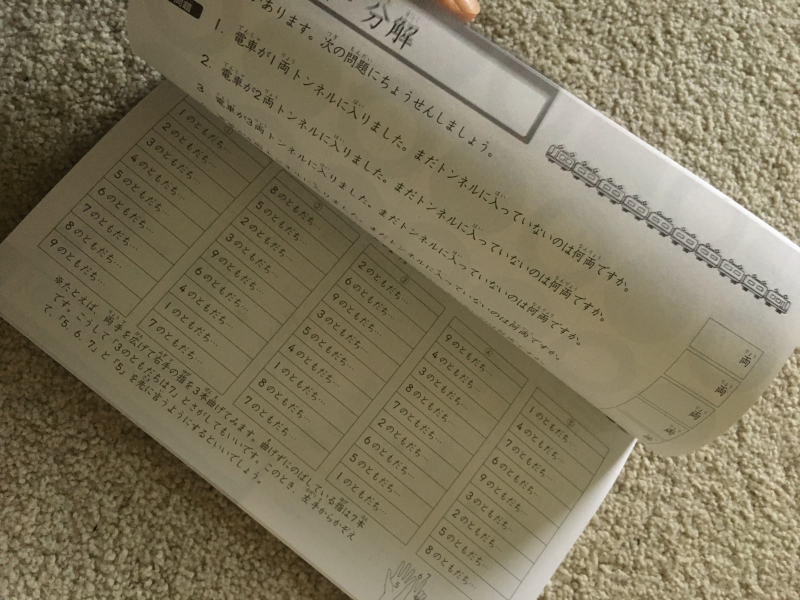 分解
があります。次の問題にちょうせんしましょう。
1. 電車が1両トンネルに入りました。まだトンネルに入っていないのは何両ですか。
両
2. 電車が2両トンネルに入りました。まだトンネルに入っていないのは何両ですか。
両
3. 電車が3両トンネルに入りました。まだトンネルに入っていないのは何両ですか。
両
トンネルに入っていないのは何両ですか。
①
1のともだち…
2のともだち…
3のともだち…
4のともだち…
5のともだち…
6のともだち…
7のともだち…
8のともだち…
9のともだち…
②
8のともだち…
5のともだち…
2のともだち…
3のともだち…
9のともだち…
6のともだち…
4のともだち…
1のともだち…
7のともだち…
③
2のともだち…
6のともだち…
9のともだち…
3のともだち…
5のともだち…
4のともだち…
1のともだち…
8のともだち…
7のともだち…
④
9のともだち…
4のともだち…
3のともだち…
8のともだち…
7のともだち…
2のともだち…
6のともだち…
5のともだち…
1のともだち…
⑤
1のともだち…
4のともだち…
7のともだち…
6のともだち…
9のともだち…
3のともだち…
2のともだち…
5のともだち…
8のともだち…
※たとえば、両手を広げて右手の指を3本曲げてみます。曲げずにのばしている指は7本
です。こうして「3のともだちは7」とさがしてもいいです。このとき、左手からかぞえ
て、「5、6、7」と「5」を先に言うようにするといいでしょう。
5
6
7